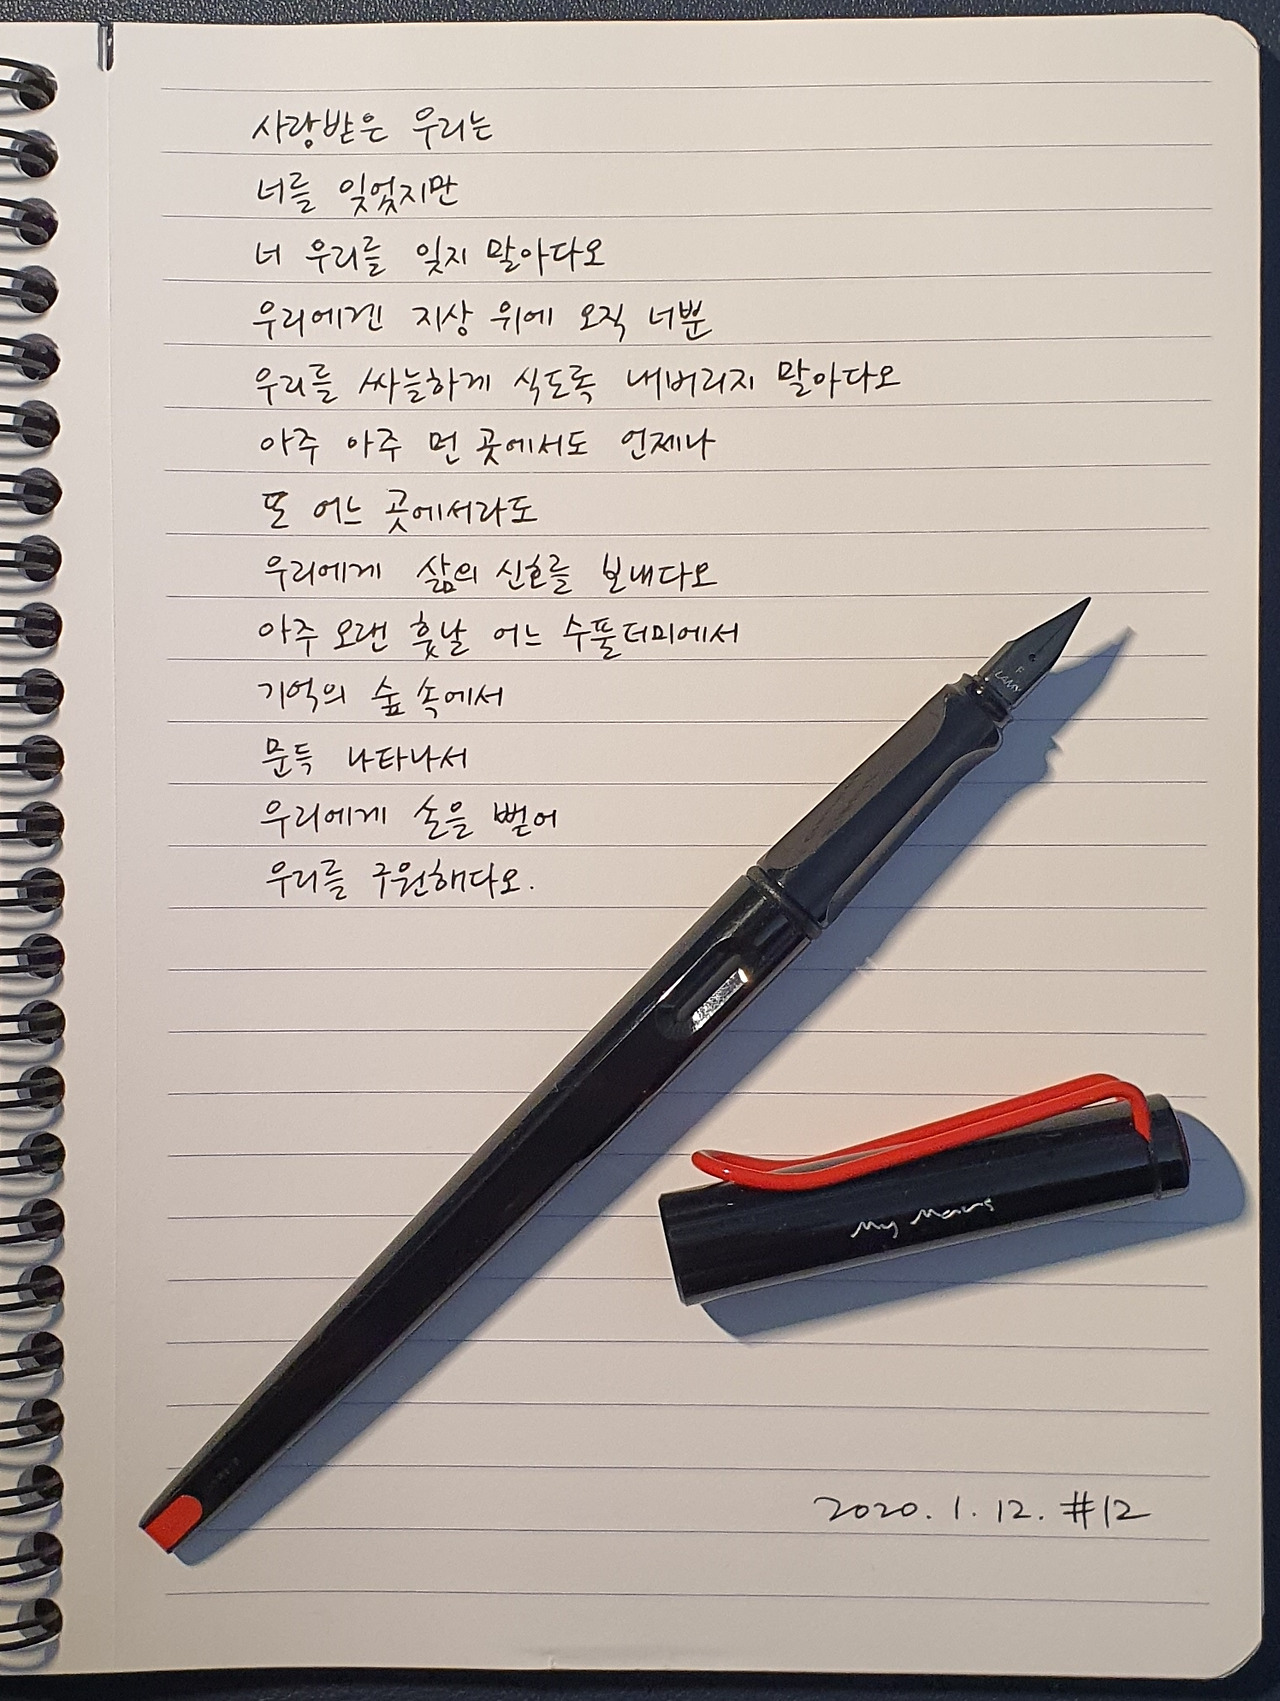 사랑받은 우리는
너를 잊었지만
너 우리를 잊지 말아다오
우리에겐 지상 위에 오직 너뿐
우리를 싸늘하게 식도록 내버리지 말아다오
아주 아주 먼 곳에서도 언제나
또 어느 곳에서라도
우리에게 삶의 신호를 보내다오
아주 오랜 훗날 어느 수풀더미에서
기억의 숲 속에서
문득 나타나서
우리에게 손을 뻗어
우리를 구원해다오.
F
LAMY
My Mans
2020. 1. 12. #12